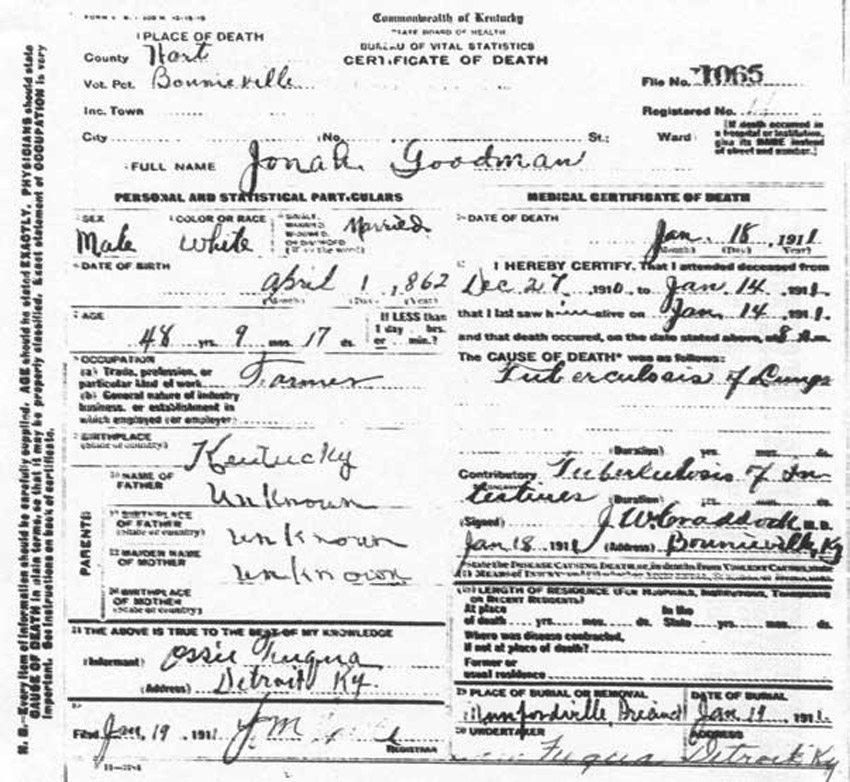 Commonwealth of Kentucky
STATE BOARD OF HEALTH
BUREAU OF VITAL STATISTICS
CERTIFICATE OF DEATH
PLACE OF DEATH
County Hart
Vot. Pct. Bonnieville
Inc. Town
City No. St.; Ward
File No. 1065
Registered No.
(If death occurred in a hospital or institution, give its NAME instead of street and number.)
FULL NAME Jonah Goodman
PERSONAL AND STATISTICAL PARTICULARS
SEX Male
COLOR OR RACE White
SINGLE, MARRIED, WIDOWED, OR DIVORCED Married
DATE OF BIRTH
April 1, 862
(Month) (Day) (Year)
AGE
48 yrs. 9 mos. 17 ds.
If LESS than 1 day .. hrs. or ... min.?
OCCUPATION
(a) Trade, profession, or particular kind of work Farmer
(b) General nature of industry
business, or establishment in
which employed (or employer)
BIRTHPLACE
(State or country) Kentucky
PARENTS
NAME OF FATHER Unknown
BIRTHPLACE OF FATHER (State or country) unknown
MAIDEN NAME OF MOTHER unknown
BIRTHPLACE OF MOTHER (State or country)
THE ABOVE IS TRUE TO THE BEST OF MY KNOWLEDGE
(Informant) Ossie Fuqua
(Address) Detroit Ky.
Filed Jan, 19, 1911 J. M.
REGISTRAR
MEDICAL CERTIFICATE OF DEATH
DATE OF DEATH
Jan. 18, 1911
(Month) (Day) (Year)
I HEREBY CERTIFY, That I attended deceased from
Dec 27, 1910, to Jan. 14, 1911,
that I last saw him alive on Jan. 14, 1911,
and that death occured, on the date stated above, at 8 a.m.
The CAUSE OF DEATH* was as follows:
Tuberculosis of Lungs
(Duration) yrs. mos. ds.
Contributory Tuberculosis of In-
testines (Duration) yrs. mos. ds.
(Signed) J. W. Craddock M.D.
Jan 18, 1911 (Address) Bonnieville, Ky
*State the DISEASE CAUSING DEATH, or, in deaths from VIOLENT CAUSES, state
LENGTH OF RESIDENCE (FOR HOSPITALS, INSTITUTIONS, TRANSIENTS
OR RECENT RESIDENTS)
At place of death yrs. mos. ds. In the State yrs. mos. ds.
Where was disease contracted,
if not at place of death?
Former or
usual residence
PLACE OF BURIAL OR REMOVAL
Munfordville
DATE OF BURIAL
Jan 19, 1911
UNDERTAKER
Fuqua
ADDRESS
Detroit Ky
N. B.—Every item of information should be carefully supplied. AGE should be stated EXACTLY. PHYSICIANS should state
CAUSE OF DEATH in plain terms, so that it may be properly classified. Exact statement of OCCUPATION is very
important. See instructions on back of certificate.